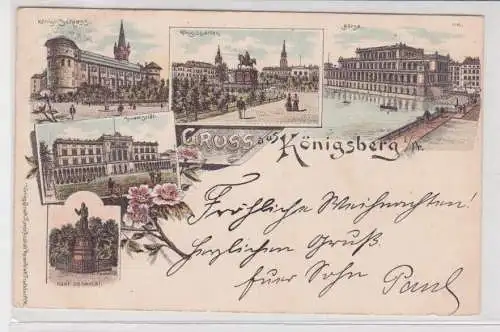 Königl. Schloss.
Königsgarten
Börse
Universität
GRUSS aus
Königsberg i/Pr.
KANT DENKMAL
Fröhliche Weihnachten!
Herzlichen Gruß
Euer Sohn Paul